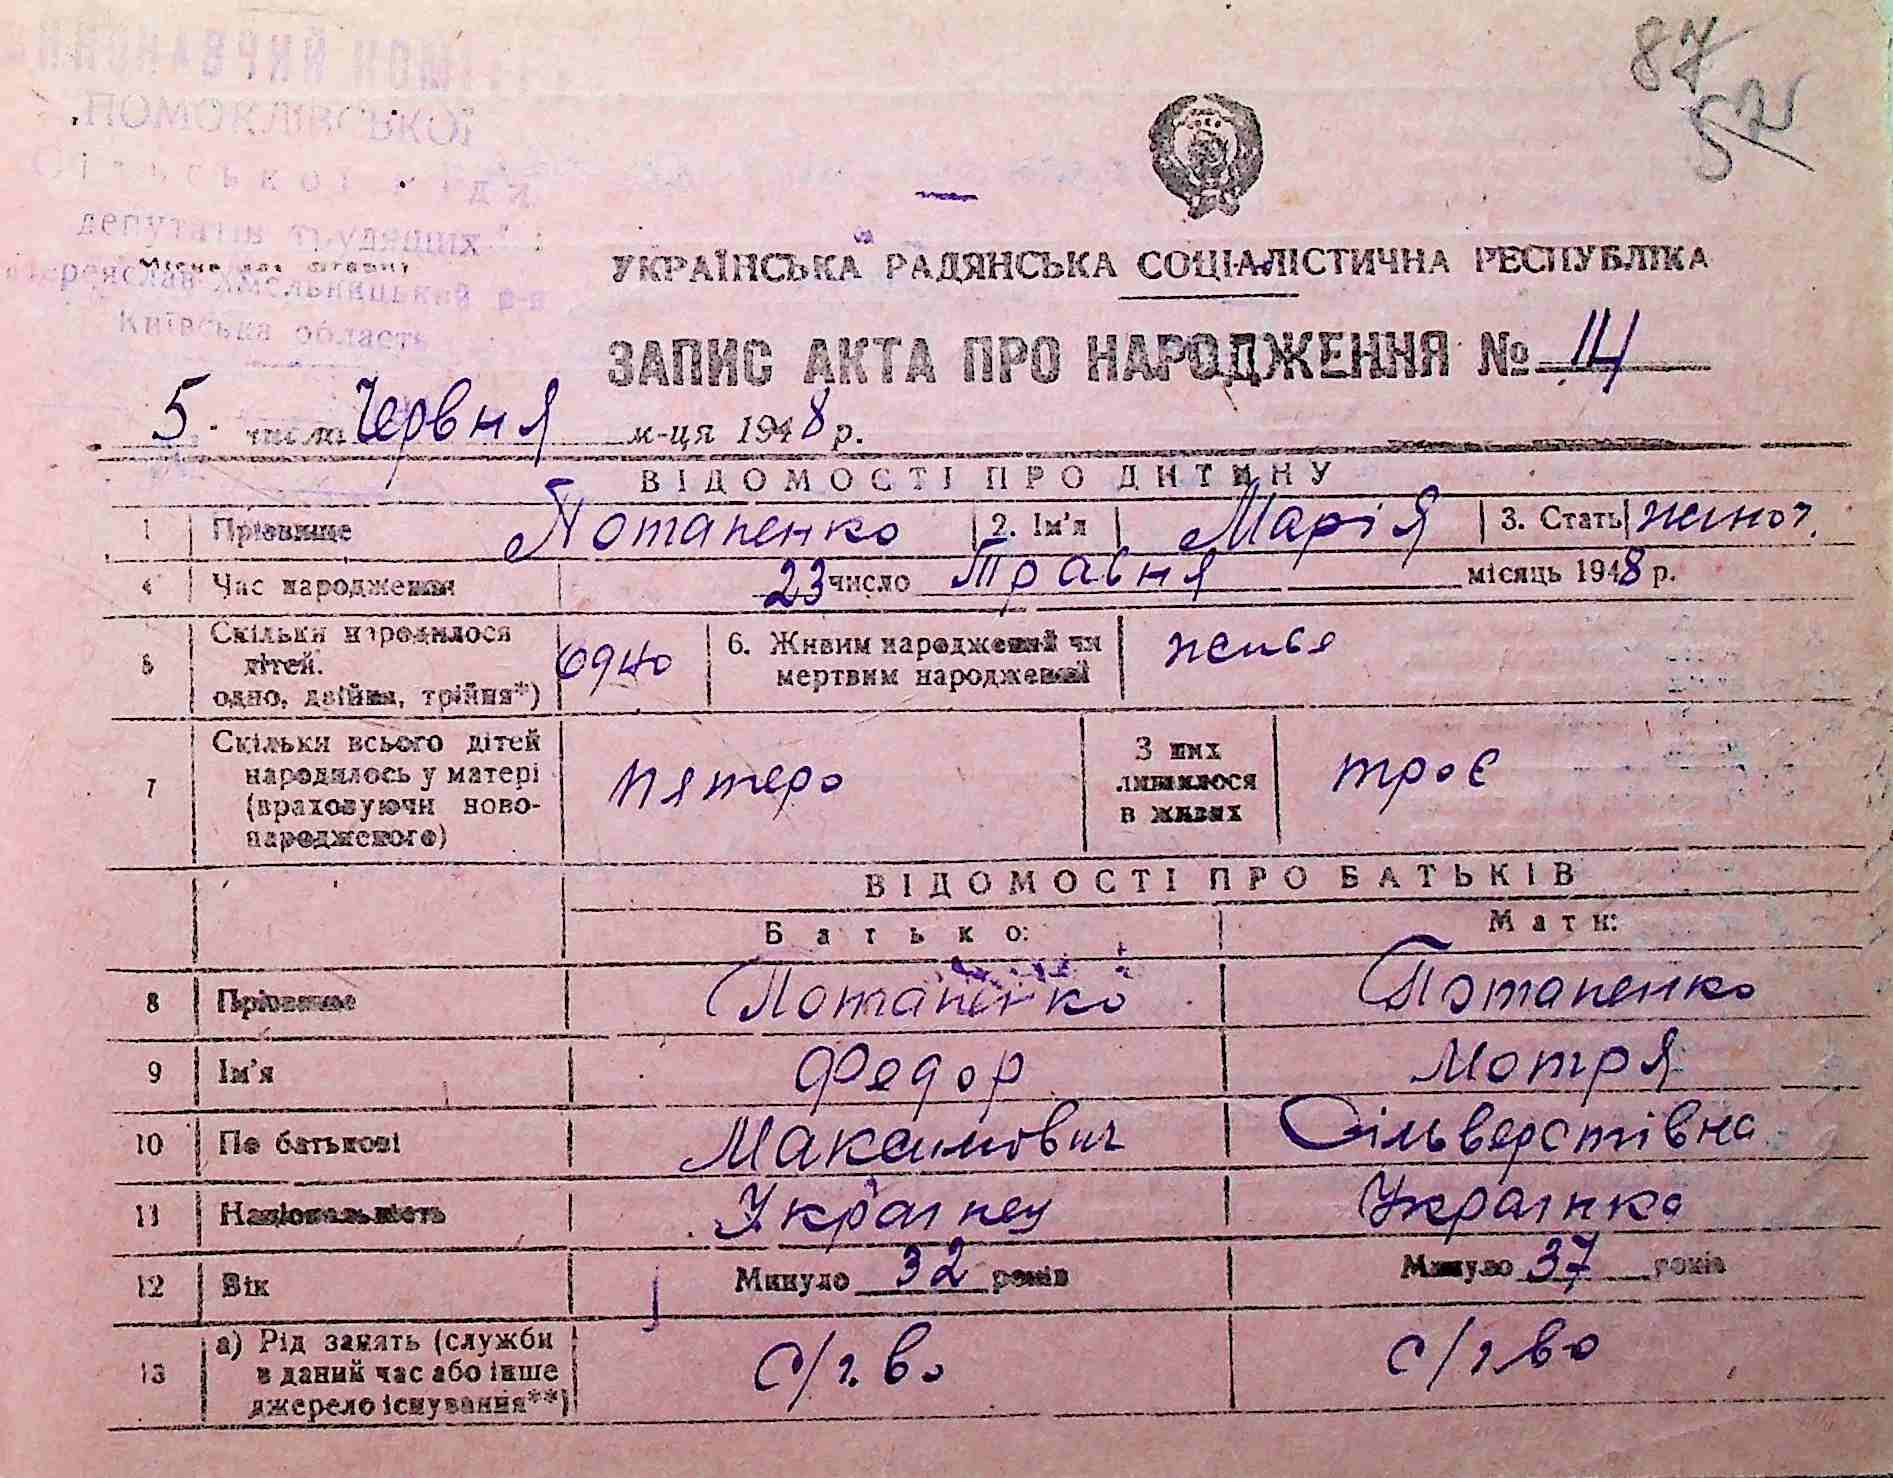 87
52
ВИКОНАВЧИЙ КОМ
ПОМОКЛІВСЬКОЇ
Сільської Ради
депутатів трудящих
Переяслав-Хмельницький р-н
Київська область
Місце для штампу
УКРАЇНСЬКА РАДЯНСЬКА СОЦІАЛІСТИЧНА РЕСПУБЛІКА
ЗАПИС АКТА ПРО НАРОДЖЕННЯ № 14
5 число Червня м-ця 1948 р.
ВІДОМОСТІ ПРО ДИТИНУ
1 Прізвище Потапенко 2. Ім'я Марія 3. Стать жіноч.
4 Час народження 23 число Травня місяць 1948 р.
5 Скільки народилося дітей. одно, двійня, трійня*) одно 6. Живим народжений чи мертвим народжений живе
7 Скільки всього дітей народилось у матері (враховуючи новонародженого) пятеро З них лишилося в живих троє
ВІДОМОСТІ ПРО БАТЬКІВ
Батько: Мати:
8 Прізвище Потапенко Потапенко
9 Ім'я Федор Мотря
10 По батькові Максимович Сільверстівна
11 Національність Українец Українка
12 Вік Минуло 32 років Минуло 37 років
13 а) Рід занять (служби в даний час або інше джерело існування**) с/г. во с/г во